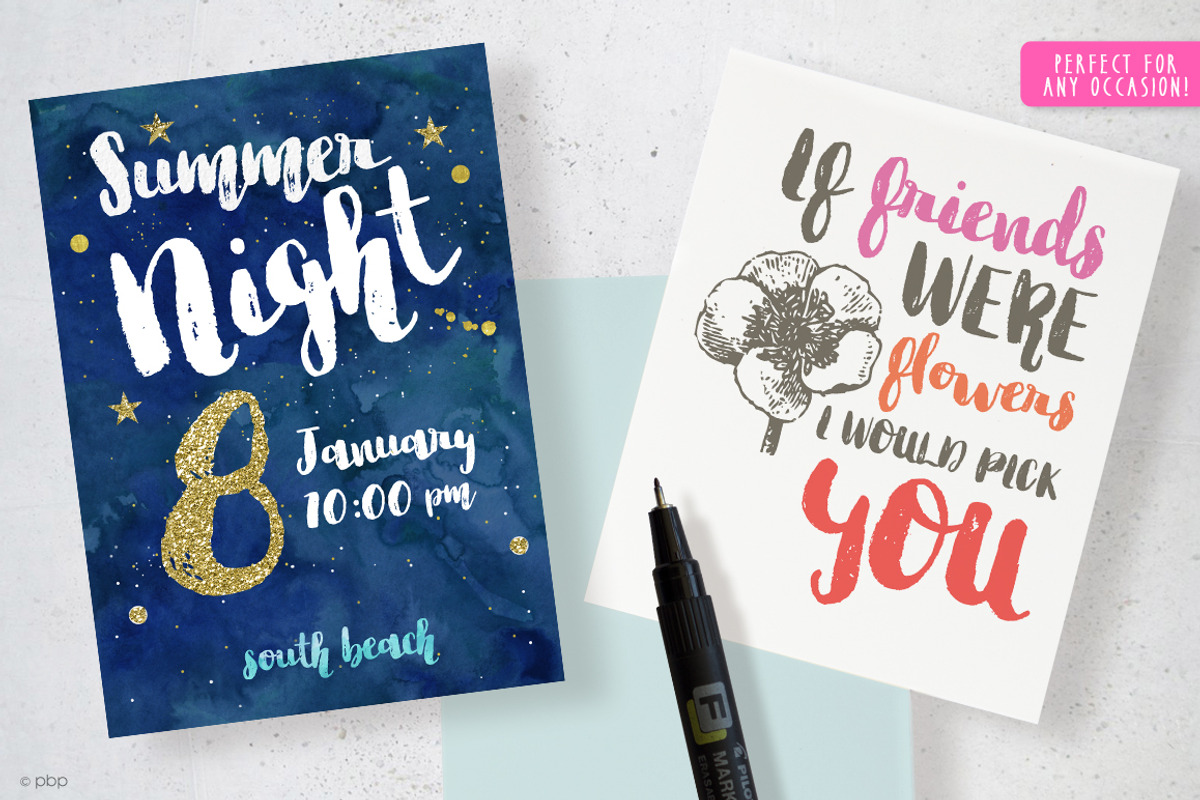 Summer
Night
8
January
10:00 pm
south beach
If friends
WERE
flowers
I WOULD PICK
YOU
PERFECT FOR
ANY OCCASION!
© pbp